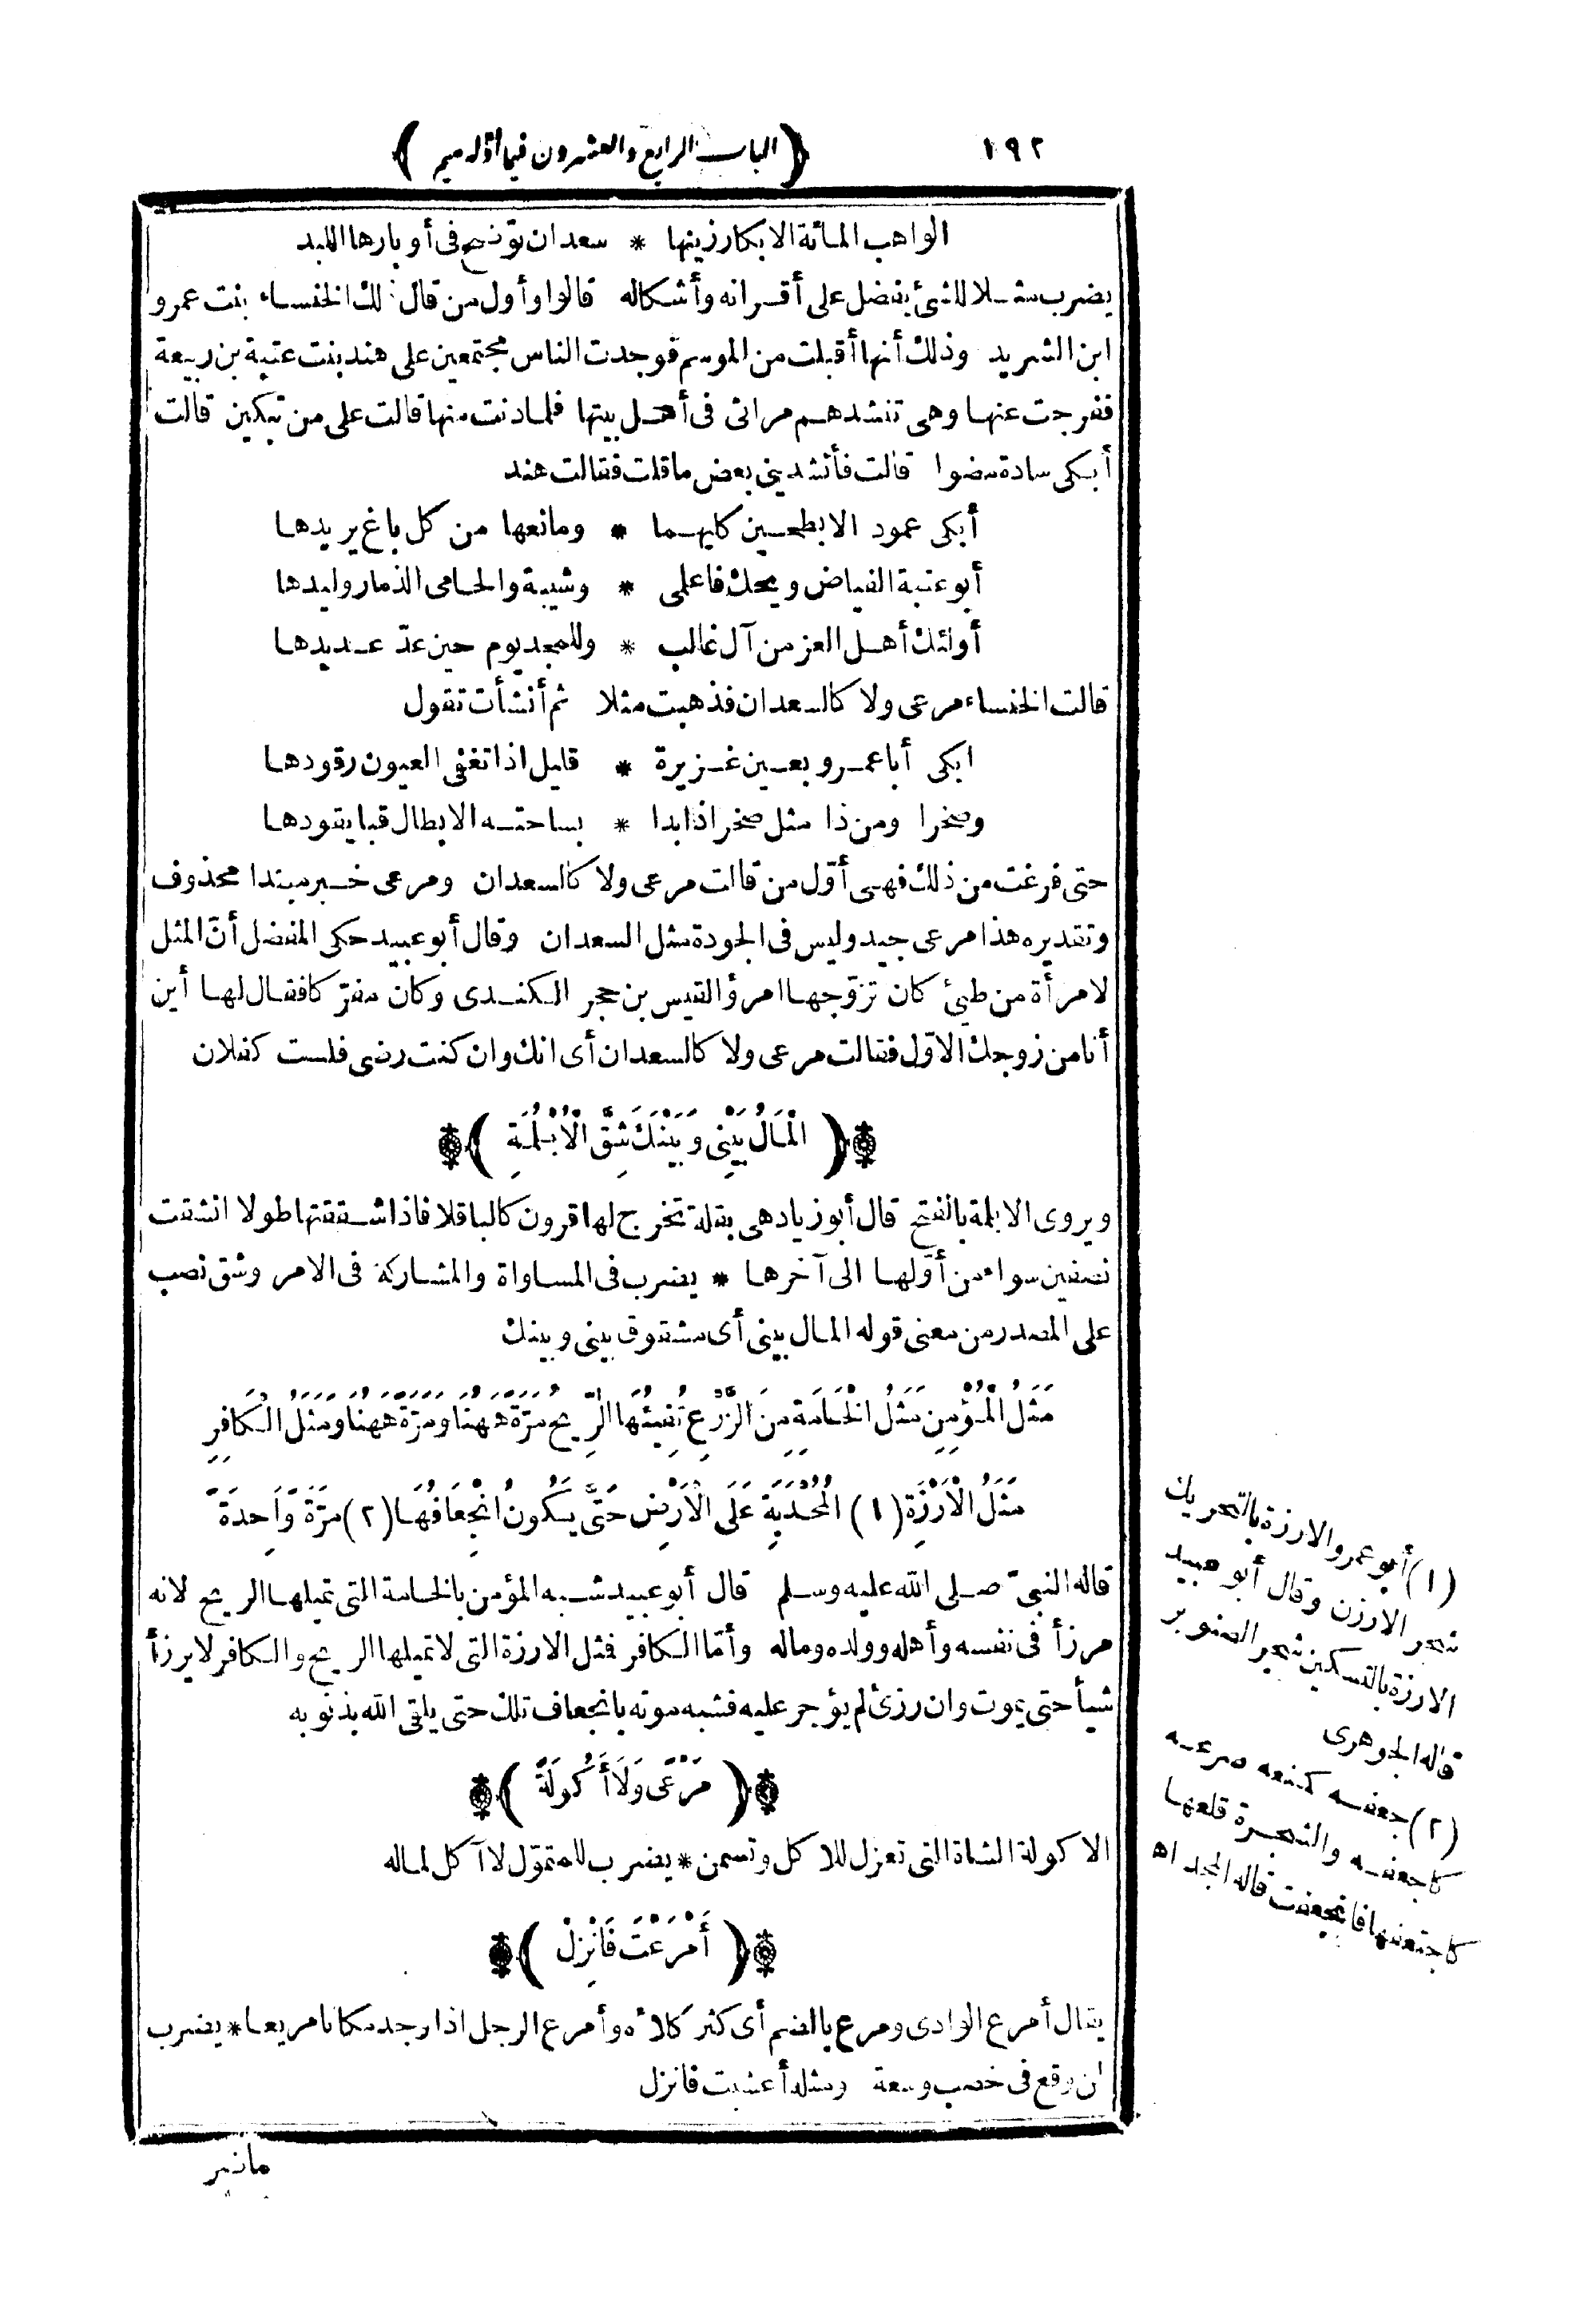 ١٩٢
(الباب الرابع والعشرون فيما أوّله ميم)
الواهب المائة الابكار زينها * سعدان توضح فى أوبارها اللبد
يضرب مثلا للشئ يفضل على أقرانه وأشكاله قالوا وأول من قال ذلك الخنساء بنت عمرو
ابن الشريد وذلك أنها أقبلت من الموسم فوجدت الناس مجتمعين على هند بنت عتبة بن ربيعة
ففرجت عنها وهى تنشدهم مراثى فى أهل بيتها فلما دنت منها قالت على من تبكين قالت
أبكى سادة مضوا قالت فأنشدينى بعض ما قلت فقالت هند
أبكى عمود الابطحين كليهما * ومانعها من كل باغ يريدها
أبو عتبة الفياض ويحك فاعلمى * وشيبة والحامى الذمار وليدها
أولئك أهل العز من آل غالب * وللمجد يوم حين عدّ عديدها
قالت الخنساء مرعى ولا كالسعدان فذهبت مثلا ثم أنشأت تقول
ابكى أبا عمرو بعين غزيرة * قليل اذا تغفى العيون رقودها
وصخرا ومن ذا مثل صخر اذا بدا * بساحته الابطال قبا يقودها
حتى فرغت من ذلك فهى أوّل من قالت مرعى ولا كالسعدان ومرعى خبر مبتدا محذوف
وتقديره هذا مرعى جيد وليس فى الجودة مثل السعدان وقال أبو عبيد حكى المفضل أنّ المثل
لامرأة من طيئ كان تزوّجها امرؤ القيس بن حجر الكندى وكان مفرّكا فقال لها أين
أنا من زوجك الاوّل فقالت مرعى ولا كالسعدان أى انك وان كنت رضى فلست كفلان
(الْمَالُ بَيْنِى وَبَيْنَكَ شِقَّ الْاُبْلُمَةِ)
ويروى الابلمة بالفتح قال أبو زياد هى بقلة تخرج لها قرون كالباقلا فاذا شققتها طولا انشقت
نصفين سواء من أوّلها الى آخرها * يضرب فى المساواة والمشاركة فى الامر وشق نصب
على المصدر من معنى قوله المال بينى أى مشقوق بينى وبينك
مَثَلُ الْمُؤْمِنِ مَثَلُ الْخَامَةِ مِنَ الزَّرْعِ تُفِيئُهَا الرِّيحُ مَرَّةً هَهُنَا وَمَرَّةً هَهُنَا وَمَثَلُ الْكَافِرِ
مَثَلُ الْاَرْزَةِ (١) الْمُجْذِيَةِ عَلَى الْاَرْضِ حَتَّى يَكُونَ انْجِعَافُهَا (٢) مَرَّةً وَاحِدَةً
قاله النبىّ صلى الله عليه وسلم قال أبو عبيد شبه المؤمن بالخامة التى تميلها الريح لانه
مرزأ فى نفسه وأهله وولده وماله وأمّا الكافر فمثل الارزة التى لا تميلها الريح والكافر لا يرزأ
شيأ حتى يموت وان رزئ لم يؤجر عليه فشبه موته بانجعاف تلك حتى يلقى الله بذنوبه
(مَرْعًى وَلَا أَكُولَةَ)
الاكولة الشاة التى تعزل للاكل وتسمن * يضرب للمتموّل لا آكل لماله
(أَمْرَعْتَ فَانْزِلْ)
يقال أمرع الوادى ومرع بالضم أى كثر كلأه وأمرع الرجل اذا وجد مكانا مريعا * يضرب
لمن وقع فى خصب وسعة ومثله أعشبت فانزل
(١) أبو عمرو الارزة بالتحريك
شجر الارزن وقال أبو عبيد
الارزة بالتسكين شجر الصنوبر
قاله الجوهرى
(٢) جعفه كمنعه صرعه
كاجعفه والشجرة قلعها
كاجتعفها فانجعفت قاله المجد اه